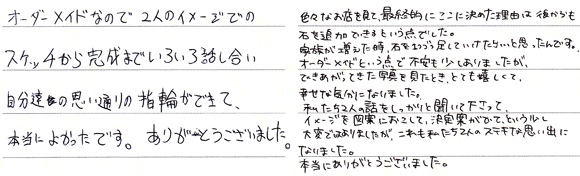 オーダーメイドなので2人のイメージでの
スケッチから完成までいろいろ話し合い
自分達の思い通りの指輪ができて、
本当によかったです。ありがとうございました。
色々なお店を見て、最終的にここに決めた理由は後からも
石を追加できるという点でした。
家族が増えた時、石をまた足していけたらいいと思ったんです。
オーダーメイドという点で不安も少しありましたが、
できあがってきた写真を見たとき、とても嬉しくて、
幸せな気分になりました。
私たち2人の話をしっかりと聞いて下さって、
イメージを図案におこして、決定案がでて、というルし
大変ではありましたが、これも私たち2人のステキな思い出に
なりました。
本当にありがとうございました。